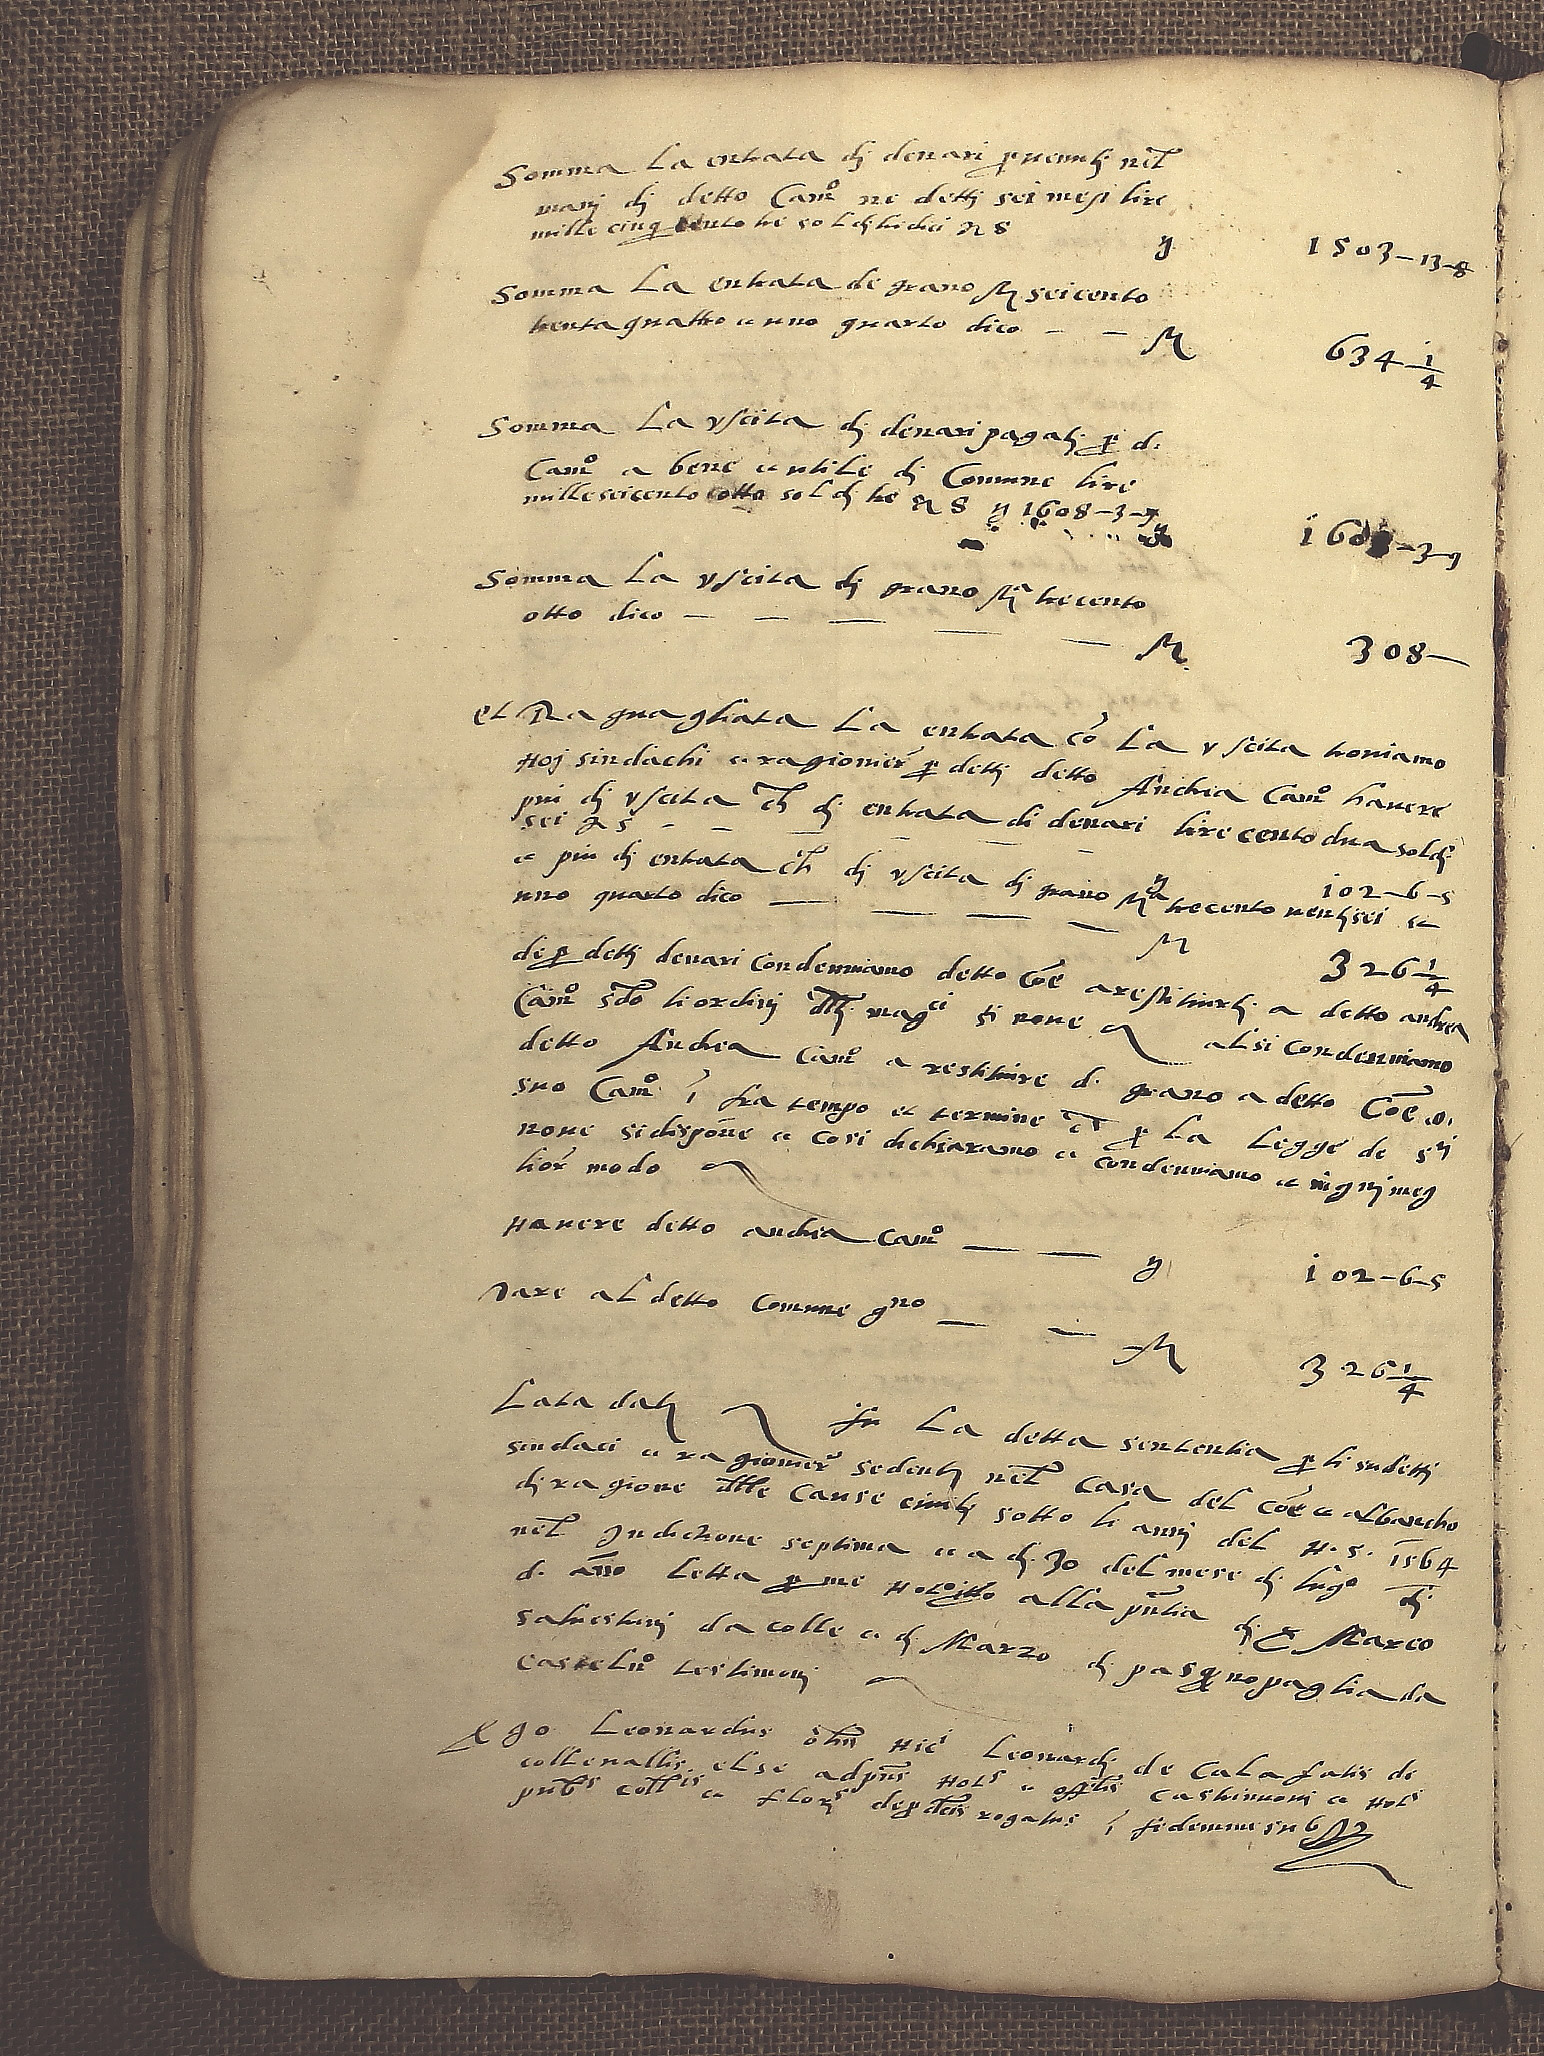 Somma La entrata dj denari pervenutj nel
manj dj detto Cam.o ne dettj sei mesi lire
mille cinq cento tre soldj tredici d 8 1503-13-8
Somma La entrata de grano M seicento
trenta quattro et uno quarto dico - - M 634 1/4
Somma La uscita dj denari pagatj p d.
Cam.o a bene et utile dj Comune lire
mille seicento otto soldj tre d 8 1608-3-9
Somma La uscita dj grano M.a trecento
otto dico - - - - - M 308-
et Raguagliata La entrata co La uscita troviamo
Noj sindachi et ragionierj p dettj detto Andrea Cam.o havere
piu dj uscita ch dj entrata di denari lire cento dua soldj
sei d 5 - - - - - 102-6-5
et piu dj entrata ch dj uscita dj grano M.a trecento ventjsei et
uno quarto dico - - - - M 326 1/4
de p dettj denari Condenniamo detto Coe a restituirlj a detto andrea
Cam.o s.do li ordinj dellj mag.ci si none alsi Condenniamo
detto Andrea Cam.o a restituire d. grano a detto Coe o
suo Cam.o i fra tempo et termine ch p La Legge de s.ri
none si dispone et cosi dichiaramo et condenniamo et in ognj meg
lior modo
Havere detto andrea Cam.o - - 102-6-5
Dare al detto Comune g.no - - M 326 1/4
Lata datj fu La detta sententia p li sudettj
sindaci et ragionierj sedentj nel Casa del Coe et al bancho
dj ragione delle Cause civilj sotto li annj del N. S. 1564
nel Inditione septima et a dj 30 del mese dj lugo dj
d. anno Letta p me Not.o alla pntia dj Marco
salvestrinj da colle et dj Marzo dj pasquno paglia da
Casteln.o testimonj
Ego Leonardus Leonardj de Calafatis de
colle vallis else ad pns Not.s et Castinovi et Not.s
rogatus i fidem me sub